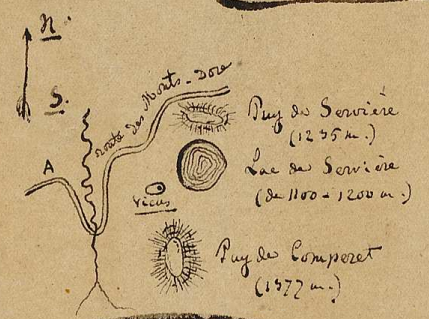 N.
S.
route des Monts-Dore
A
Puy de Servière
(1235 m.)
Lac de Servière
(de 1100 - 1200 m.)
Vicus
Puy de Comperet
(1377 m.)